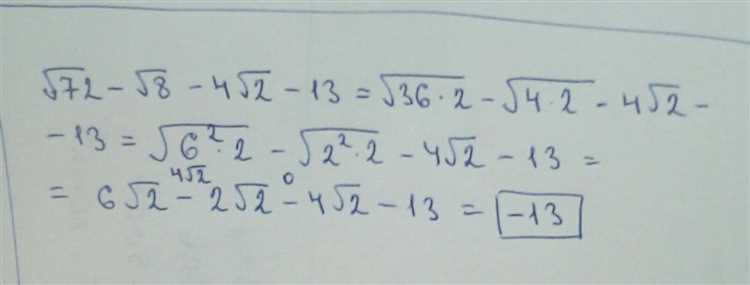 √72 - √8 - 4√2 - 13 = √36·2 - √4·2 - 4√2 -
- 13 = √6²·2 - √2²·2 - 4√2 - 13 =
4√2 0
= 6√2 - 2√2 - 4√2 - 13 = -13